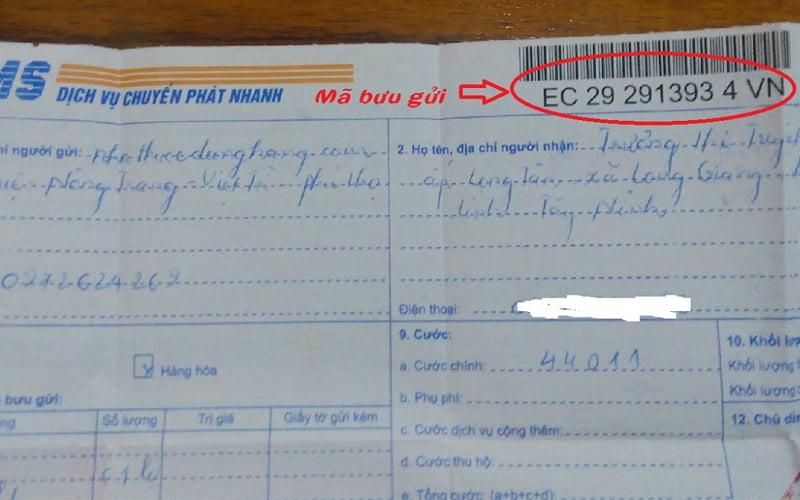 MS
DỊCH VỤ CHUYỂN PHÁT NHANH
Mã bưu gửi
EC 29 291393 4 VN
hỉ người gửi:
Nông Trang - Việt Trì - Phú Thọ
2. Họ tên, địa chỉ người nhận: Trưởng Thị Tuyết
ấp Long Tân, xã Long Giang
tỉnh Tây Ninh
Điện thoại:
Hàng hóa
9. Cước:
a. Cước chính: 44011
b. Phụ phí:
c. Cước dịch vụ cộng thêm:
d. Cước thu hộ:
e. Tổng cước: (a+b+c+d)
10. Khối lư
Khối lượng
Khối lượng
12. Chú dẫ
bưu gửi:
ng
Số lượng
Trị giá
Giấy tờ gửi kèm